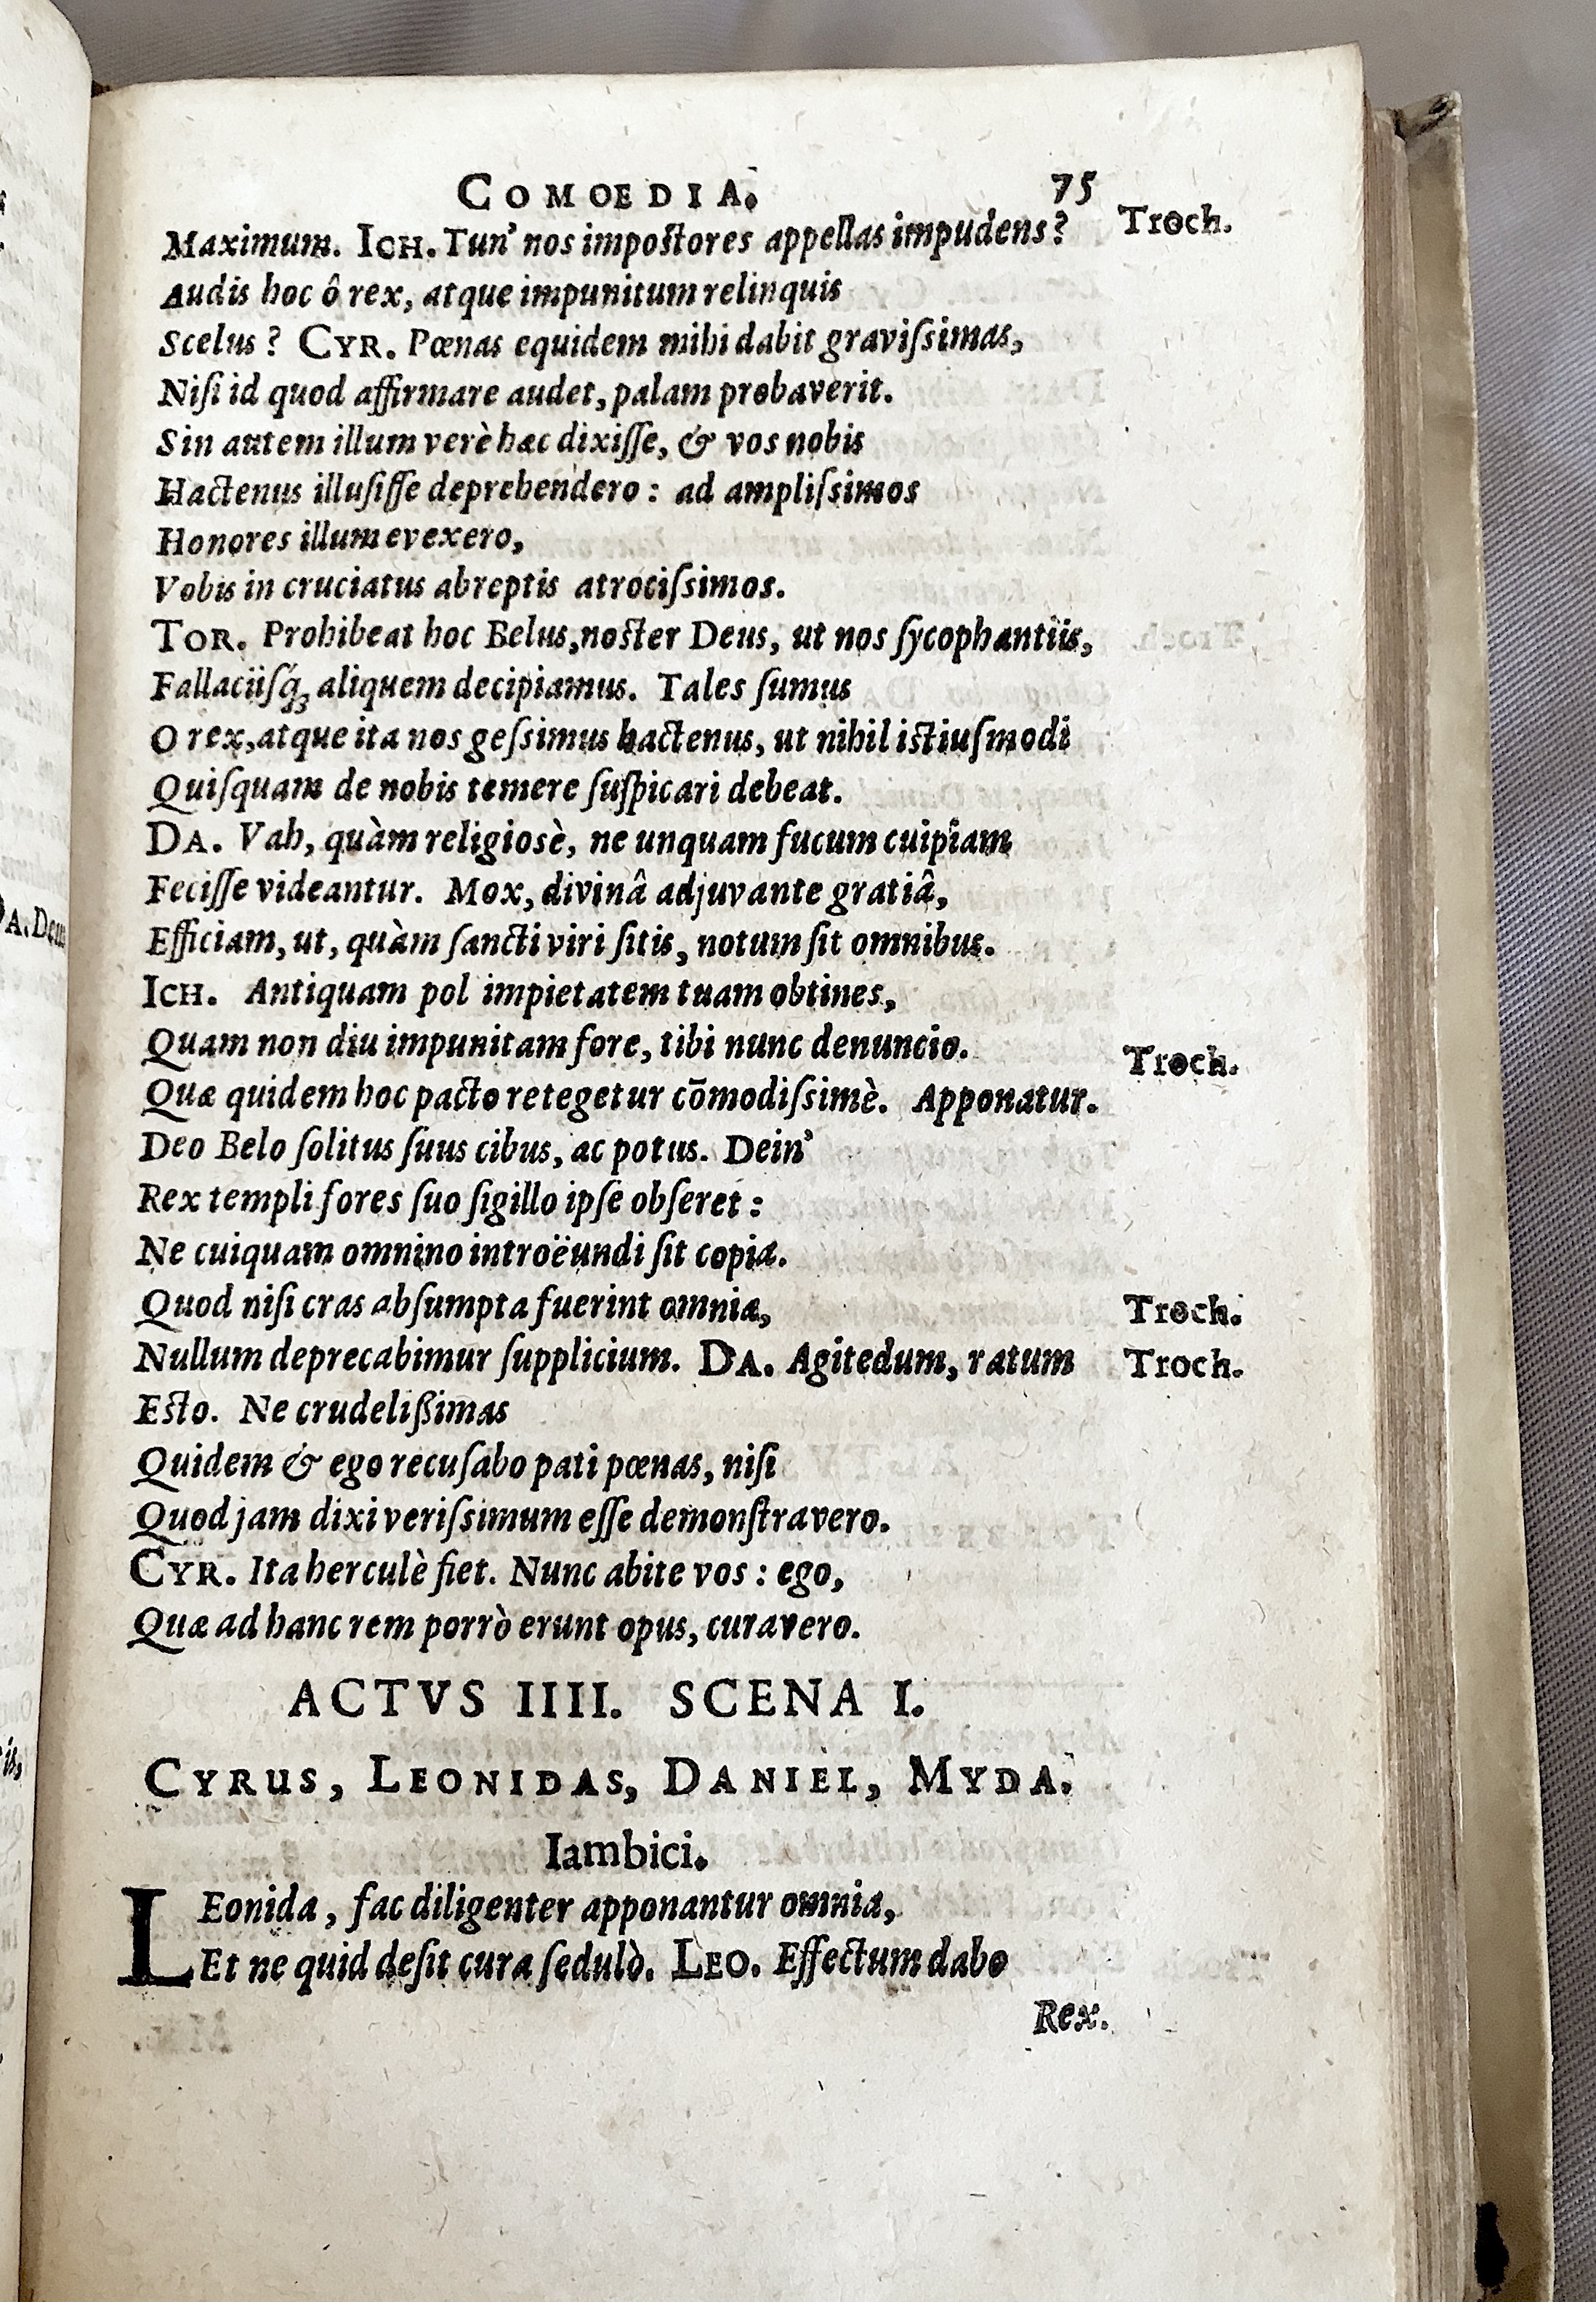 COMOEDIA. 75
Maximum. ICH. Tun' nos impostores appellas impudens? Troch.
Audis hoc ô rex, atque impunitum relinquis
Scelus? CYR. Pœnas equidem mihi dabit graviſsimas,
Niſi id quod affirmare audet, palam probaverit.
Sin autem illum verè hæc dixiſſe, & vos nobis
Hactenus illuſiſſe deprehendero: ad ampliſsimos
Honores illum evexero,
Vobis in cruciatus abreptis atrociſsimos.
TOR. Prohibeat hoc Belus, noſter Deus, ut nos ſycophantiis,
Fallaciiſq; aliquem decipiamus. Tales ſumus
O rex, atque ita nos geſsimus hactenus, ut nihil iſtiuſmodi
Quiſquam de nobis temere ſuſpicari debeat.
DA. Vah, quàm religiosè, ne unquam fucum cuipiam
Feciſſe videantur. Mox, divinâ adjuvante gratiâ,
Efficiam, ut, quàm ſancti viri ſitis, notum ſit omnibus.
ICH. Antiquam pol impietatem tuam obtines,
Quam non diu impunitam fore, tibi nunc denuncio.
Quæ quidem hoc pacto retegetur cōmodiſsimè. Apponatur. Troch.
Deo Belo ſolitus ſuus cibus, ac potus. Dein'
Rex templi fores ſuo ſigillo ipſe obſeret:
Ne cuiquam omnino introëundi ſit copia.
Quod niſi cras abſumpta fuerint omnia, Troch.
Nullum deprecabimur ſupplicium. DA. Agitedum, ratum Troch.
Eſto. Ne crudelißimas
Quidem & ego recuſabo pati pœnas, niſi
Quod jam dixi veriſsimum eſſe demonſtravero.
CYR. Ita herculè fiet. Nunc abite vos: ego,
Quæ ad hanc rem porrò erunt opus, curavero.
ACTVS IIII. SCENA I.
CYRUS, LEONIDAS, DANIEL, MYDA.
Iambici.
LEonida, fac diligenter apponantur omnia,
Et ne quid deſit cura ſedulò. LEO. Effectum dabo
Rex.